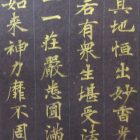 其地恒出妙香
若有衆生堪受法
一一莊嚴悉圓滿
如來神力靡不周